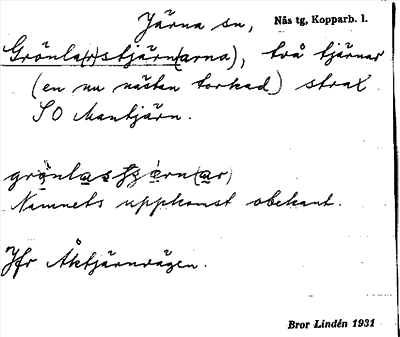 Järna sn, Nås tg, Kopparb. l.
Grönla(r)stjärn(arna), två tjärnar
(en nu nästan torkad) strax
SO Mantjärn.
Namnets uppkomst obekant.
Jfr Åktjärnvägen.
Bror Lindén 1931